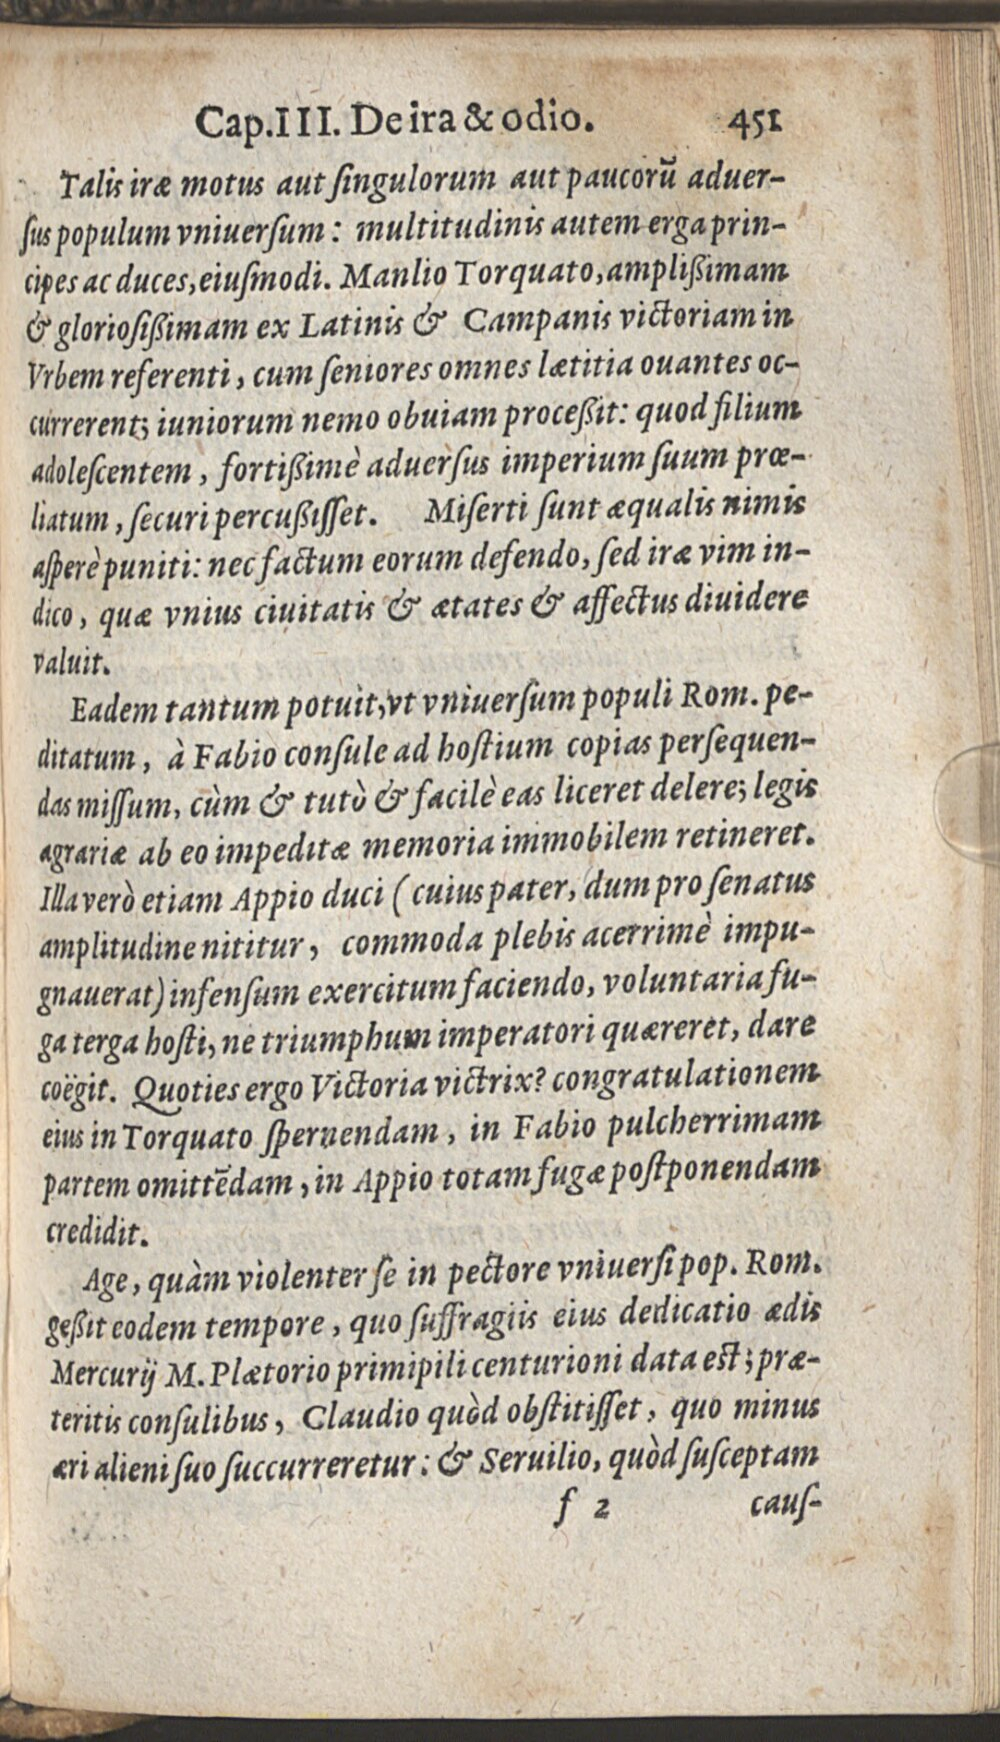 Cap.III. De ira & odio. 451
Talis iræ motus aut ſingulorum aut paucorū aduer-
ſus populum vniuerſum: multitudinis autem erga prin-
cipes ac duces, eiuſmodi. Manlio Torquato, amplißimam
& glorioſißimam ex Latinis & Campanis victoriam in
Vrbem referenti, cum ſeniores omnes lætitia ouantes oc-
currerent; iuniorum nemo obuiam proceßit: quod filium
adoleſcentem, fortißimè aduerſus imperium ſuum præ-
liatum, ſecuri percußiſſet. Miſerti ſunt æqualis nimis
aſperè puniti: nec factum eorum defendo, ſed iræ vim in-
dico, quæ vnius ciuitatis & ætates & affectus diuidere
valuit.
Eadem tantum potuit, vt vniuerſum populi Rom. pe-
ditatum, à Fabio conſule ad hoſtium copias perſequen-
das miſſum, cùm & tutò & facilè eas liceret delere; legis
agrariæ ab eo impeditæ memoria immobilem retineret.
Illa verò etiam Appio duci (cuius pater, dum pro ſenatus
amplitudine nititur, commoda plebis acerrimè impu-
gnauerat) infenſum exercitum faciendo, voluntaria fu-
ga terga hoſti, ne triumphum imperatori quæreret, dare
coëgit. Quoties ergo Victoria victrix? congratulationem
eius in Torquato ſpernendam, in Fabio pulcherrimam
partem omittēdam, in Appio totam fugæ poſtponendam
credidit.
Age, quàm violenter ſe in pectore vniuerſi pop. Rom.
geßit eodem tempore, quo ſuffragiis eius dedicatio ædis
Mercurij M. Plætorio primipili centurioni data eſt; præ-
teritis conſulibus, Claudio quòd obſtitiſſet, quo minus
æri alieni ſuo ſuccurreretur: & Seruilio, quòd ſuſceptam
f 2 cauſ-